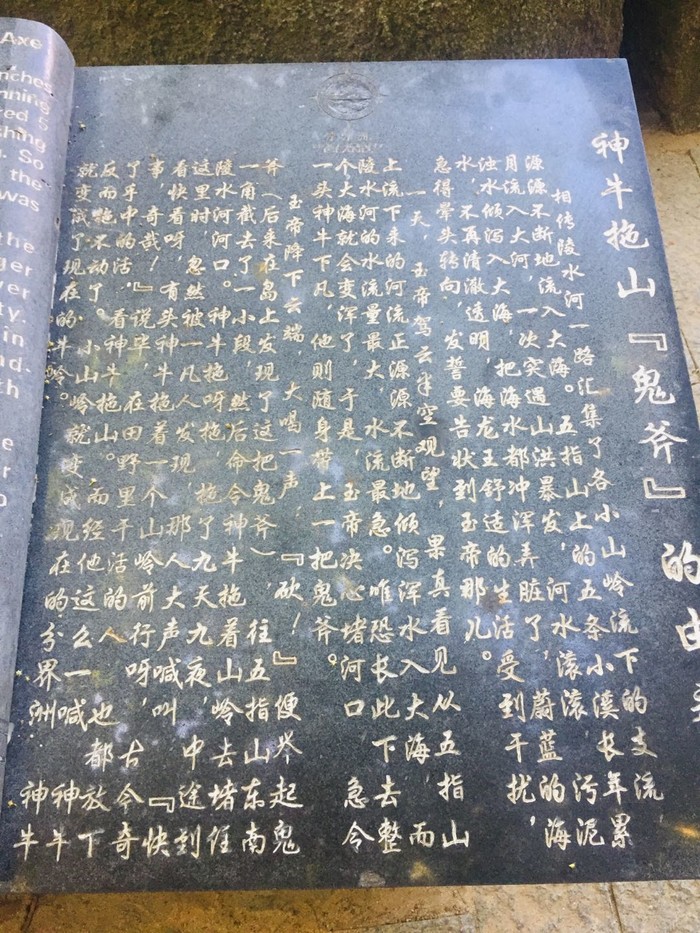 神牛拖山『鬼斧』的由
相传陵水河一路汇集了各小山岭流下的支流,
源源不断地流入大海。五指山上的五条小溪长年累
月流入大河,一次突遇山洪暴发,河水滚滚污泥
浊水倾泻入大海,把海水都冲浑弄脏了,蔚蓝的海
水,不再清澈透明,海龙王舒适的生活受到干扰,
急得晕头转向,发誓要告状到玉帝那儿。
一天,玉帝驾云半空观望,果真看见从五指山
上流下来的河流正源源不断地倾泻浑水入大海,而
陵水河的水流量最大,水流最急。唯恐长此下去整
个大海就会变浑了,于是,玉帝决心堵河口,急令
一头神牛下凡,他则随身带上一把鬼斧。
玉帝降下云端,大喝一声,『砍!』便举起鬼
斧(后来在岛上发现了这把鬼斧),往五指山东南
一角截去了一小段,然后命令神牛拖着山岭去堵住
陵水河河口。神牛拖呀拖,拖了九天九夜,中途到
这里时,忽然被一凡人发现,那人大声喊叫,『快
看快看呀,有头神牛拖着一个山岭前行呀,古今奇
事,奇哉!』说毕,在田野里干活的人也都放下
了手中的活,看神牛拖山。而经他这么一喊,神牛
反而拖不动了。小山岭就变成现在的分界洲,神牛
就变成了现在的牛岭。
Axe
So
the
was
the
in